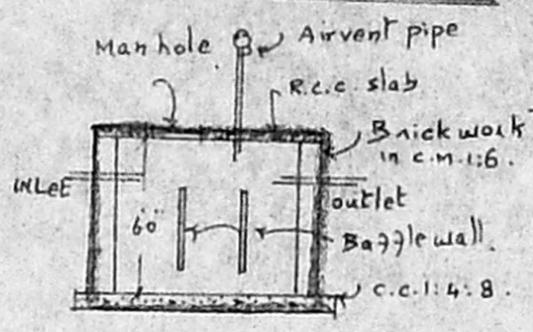 Man hole
Airvent pipe
R.c.c. slab
Brick work
in c.m.1:6.
INLeE
outlet
6'0"
Bazzle wall.
c.c.1:4:8.